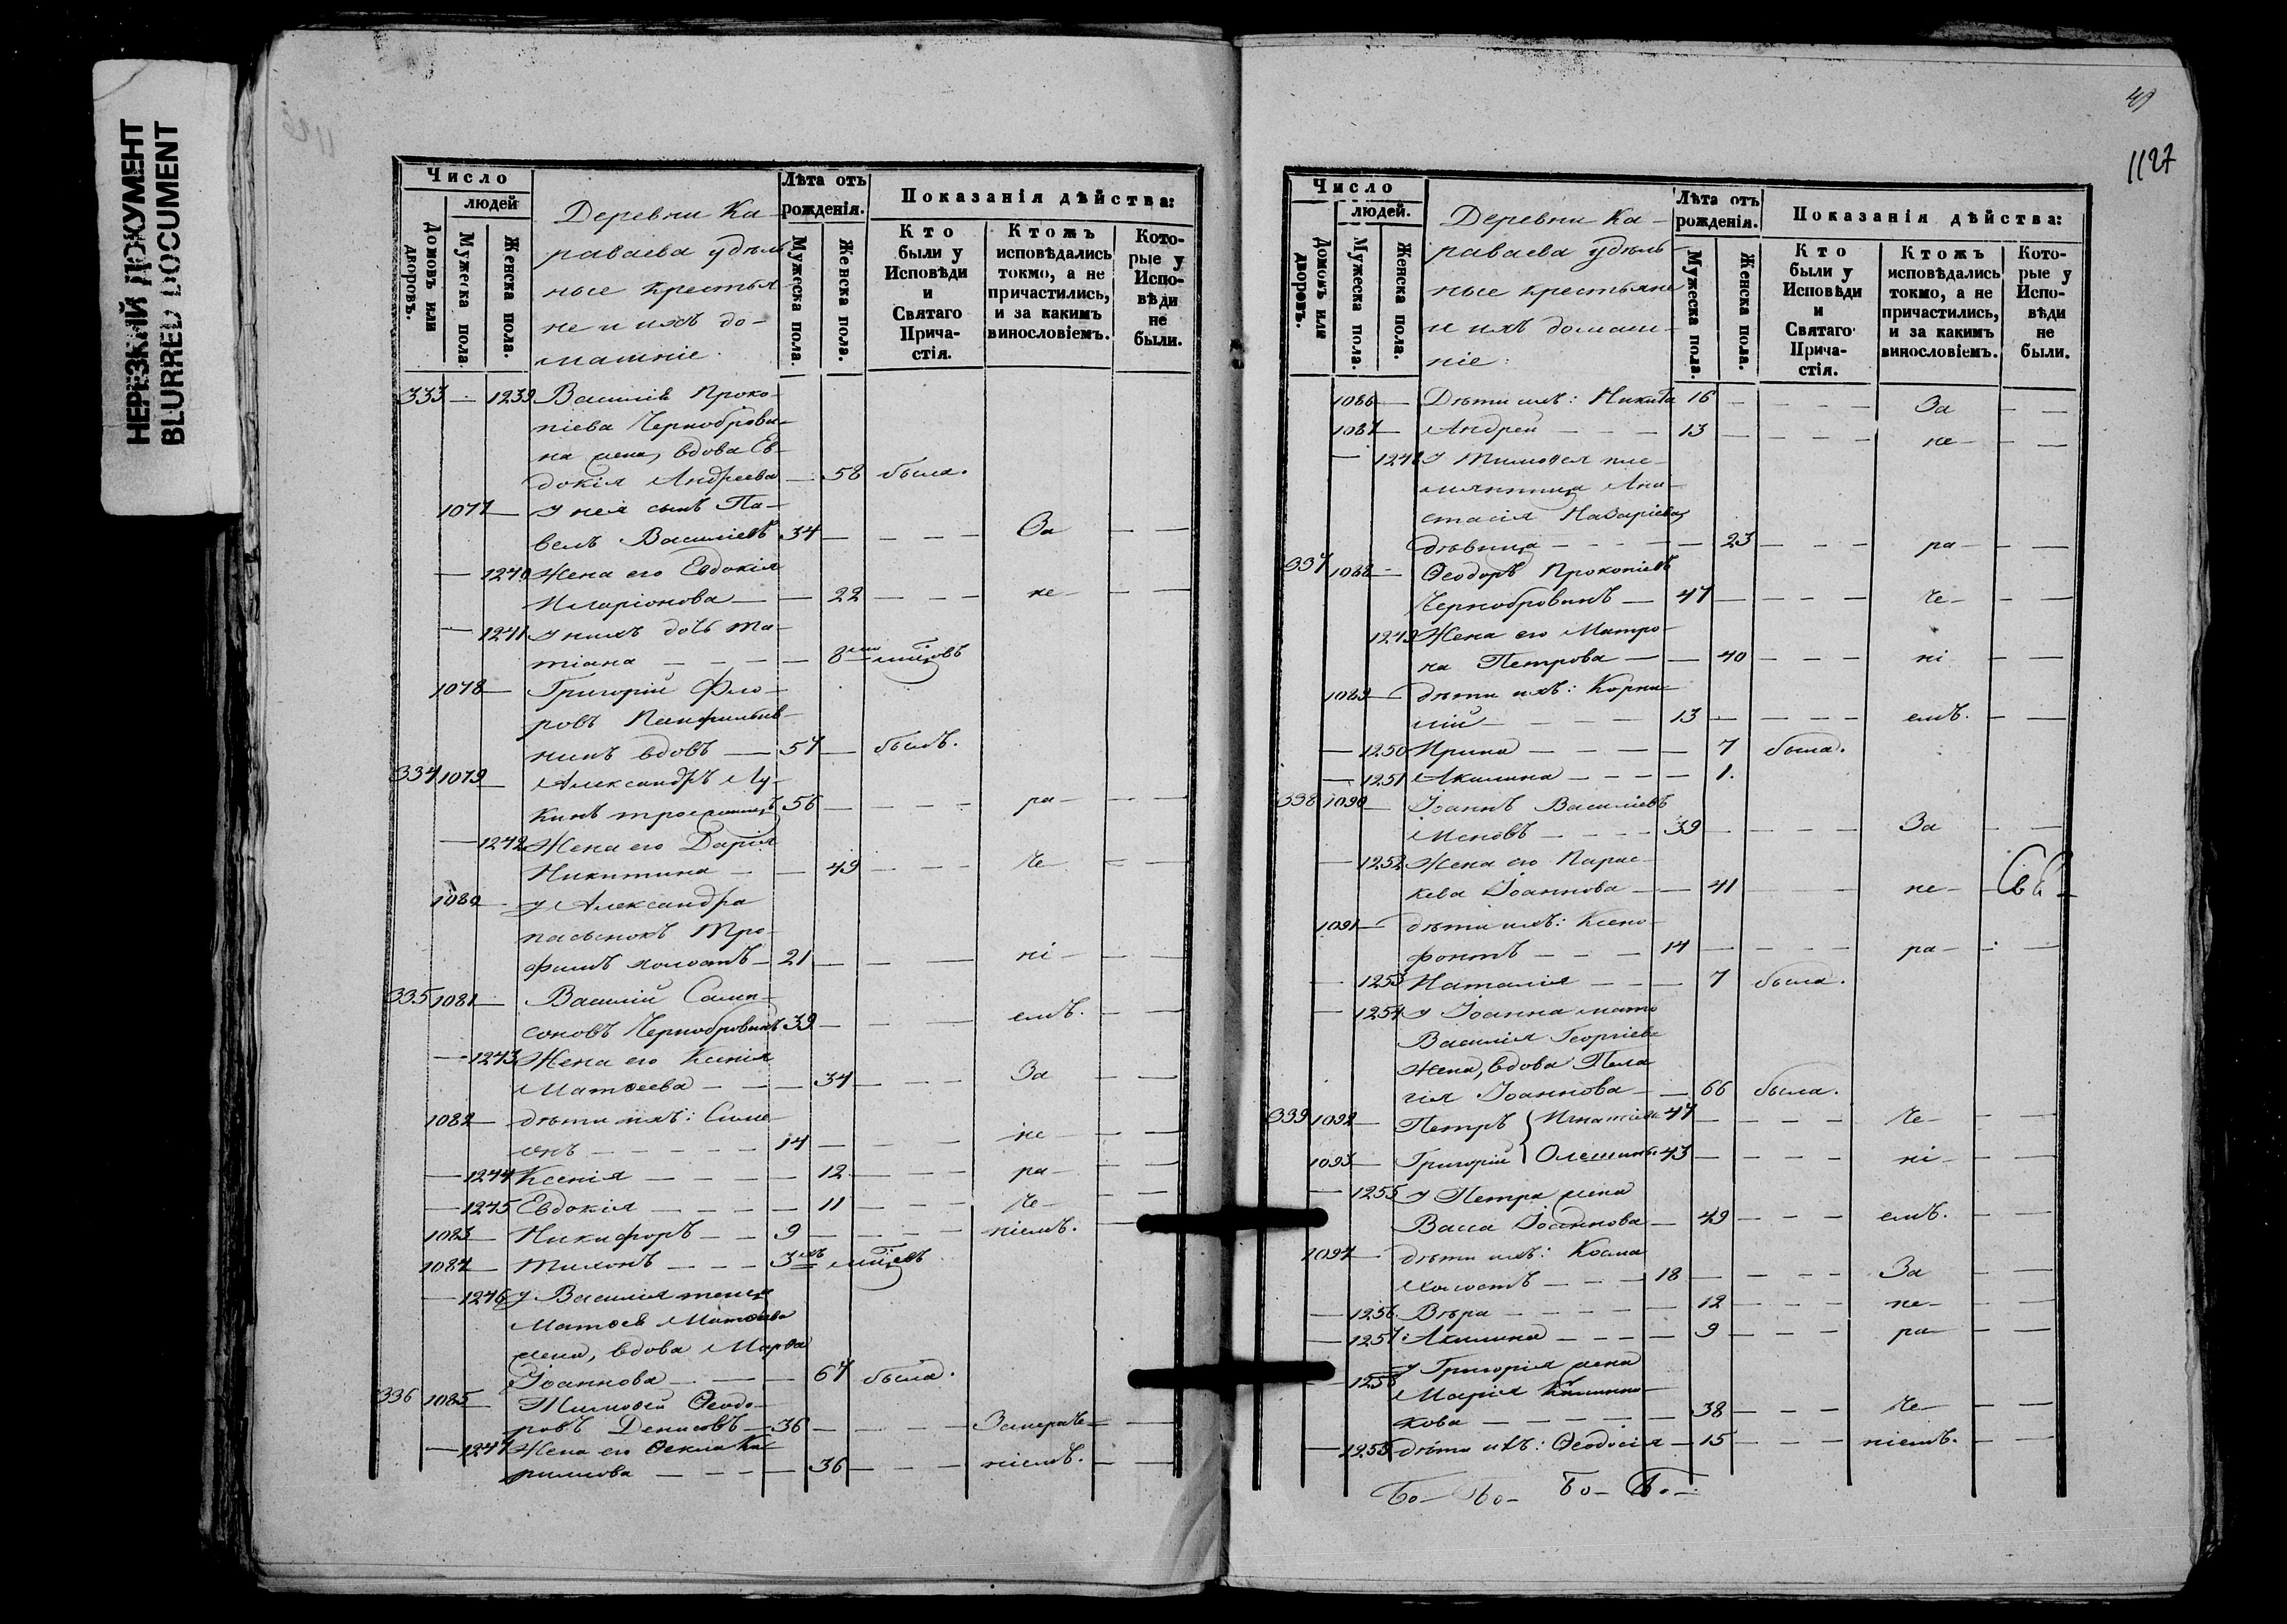 НЕРЕЗКИЙ ДОКУМЕНТ
BLURRED DOCUMENT
Число
людей
Домовъ или дворовъ.
Мужеска пола.
Женска пола.
Деревни Ка-
раваева удѣль
ные крестья
не и ихъ до-
машніе.
Лѣта отъ
рожденія.
Мужеска пола.
Женска пола.
Показанія дѣйства:
Кто
были у
Исповѣди
и
Святаго
Прича-
стія.
Ктожъ
исповѣдались
токмо, а не
причастились,
и за какимъ
винословіемъ.
Кото-
рые у
Испо-
вѣди
не
были.
333 — 1239 Василія Проко-
піева Черноброви-
на жена, вдова Ев-
докія Андреева — 58 была.
1077 — у нея сынъ Па-
велъ Василіевъ 34 — — — — За — —
— 1240 Жена его Евдокія
Иларіонова — — 22 — — — не — —
— 1241 у нихъ дочь Та-
тіана — — — — 8
1078 — Григорій Фло-
ровъ
нинъ вдовъ — 57 — былъ.
334 1079 — Александръ Лу-
кинъ 56 — — — — ра — — —
— 1242 Жена его Дарія
Никитина — — 49 — — — че — — —
1080 — у Александра
пасынокъ Тро-
фимъ холостъ — 21 — — — ні — — —
335 1081 — Василій Самп-
соновъ Чернобровинъ 39 — — — емъ. — —
— 1243 Жена его Ксенія
Матѳеева — — — 34 — — — За — —
1082 — дѣти ихъ: Симе-
онъ — — — — — 14 — — — не — — —
— 1244 Ксенія — — — — 12 — — — ра — — —
— 1245 Евдокія — — — — 11 — — — че — — —
1083 — Никифоръ — — 9 — — — — ніемъ. —
1084 — Тихонъ — — — 3
— 1246 у Василія теща
Матѳея
жена, вдова Марѳа
Іоаннова — — — 67 была.
336 1085 — Тимоѳей Ѳеодо-
ровъ Денисовъ — 36 — — — — Замераче — —
— 1247 Жена его Ѳекла Ка-
рпилова — — — — 36 — — — ніемъ. — —
49
1127
Число
людей.
Домовъ или дворовъ.
Мужеска пола.
Женска пола.
Деревни Ка-
раваева удѣль
ные крестьяне
и ихъ домаш-
ніе:
Лѣта отъ
рожденія.
Мужеска пола.
Женска пола.
Показанія дѣйства:
Кто
были у
Исповѣди
и
Святаго
Прича-
стія.
Ктожъ
исповѣдались
токмо, а не
причастились,
и за какимъ
винословіемъ.
Кото-
рые у
Испо-
вѣди
не
были.
1086 — Дѣти ихъ: Никита 16 — — — — За — —
1087 — Андрей — — — 13 — — — — не — — —
— 1248 у Тимоѳея пле-
мянница Ана-
стасія Назаріева,
дѣвица — — — — 23 — — — ра — — —
337 1088 — Ѳеодоръ Прокопіевъ
Чернобровинъ — 47 — — — — че — — —
1249 Жена его Матро-
на Петрова — — 40 — — — ні — —
1089 — дѣти ихъ: Корни-
лій — — — — 13 — — — — емъ. — —
— 1250 Ирина — — — — 7 была.
— 1251 Акилина — — — — 1.
338 1090 — Іоаннъ Василіевъ
39 — — — — За — —
— 1252 Жена его Парас-
кева Іоаннова — — 41 — — — не —
1091 — дѣти ихъ: Ксено-
фонтъ — — — 14 — — — — ра — — —
— 1253 Наталія — — — 7 была.
— 1254 у Іоанна мать
Василія Георгіева
жена, вдова Пела
гія Іоаннова — — 66 была.
339 1092 — Петръ Игнатіевы 47 — — — — че — —
1093 — Григорій Олешины 43 — — — — ні — — —
— 1255 у Петра жена
Васса Іоаннова — 49 — — — емъ. — —
1094 — дѣти ихъ: Косма
холостъ — — — 18 — — — — За — —
— 1256 Вѣра — — — — — 12 — — — не — — —
— 1257 Акилина — — — — 9 — — — ра — — —
— 1258 у Григорія жена
Марія
кова — — — — — 38 — — — че — — —
— 1259 дѣти ихъ: Ѳеодосія — 15 — — — ніемъ. — —
Бо — Бо — Бо — Бо —